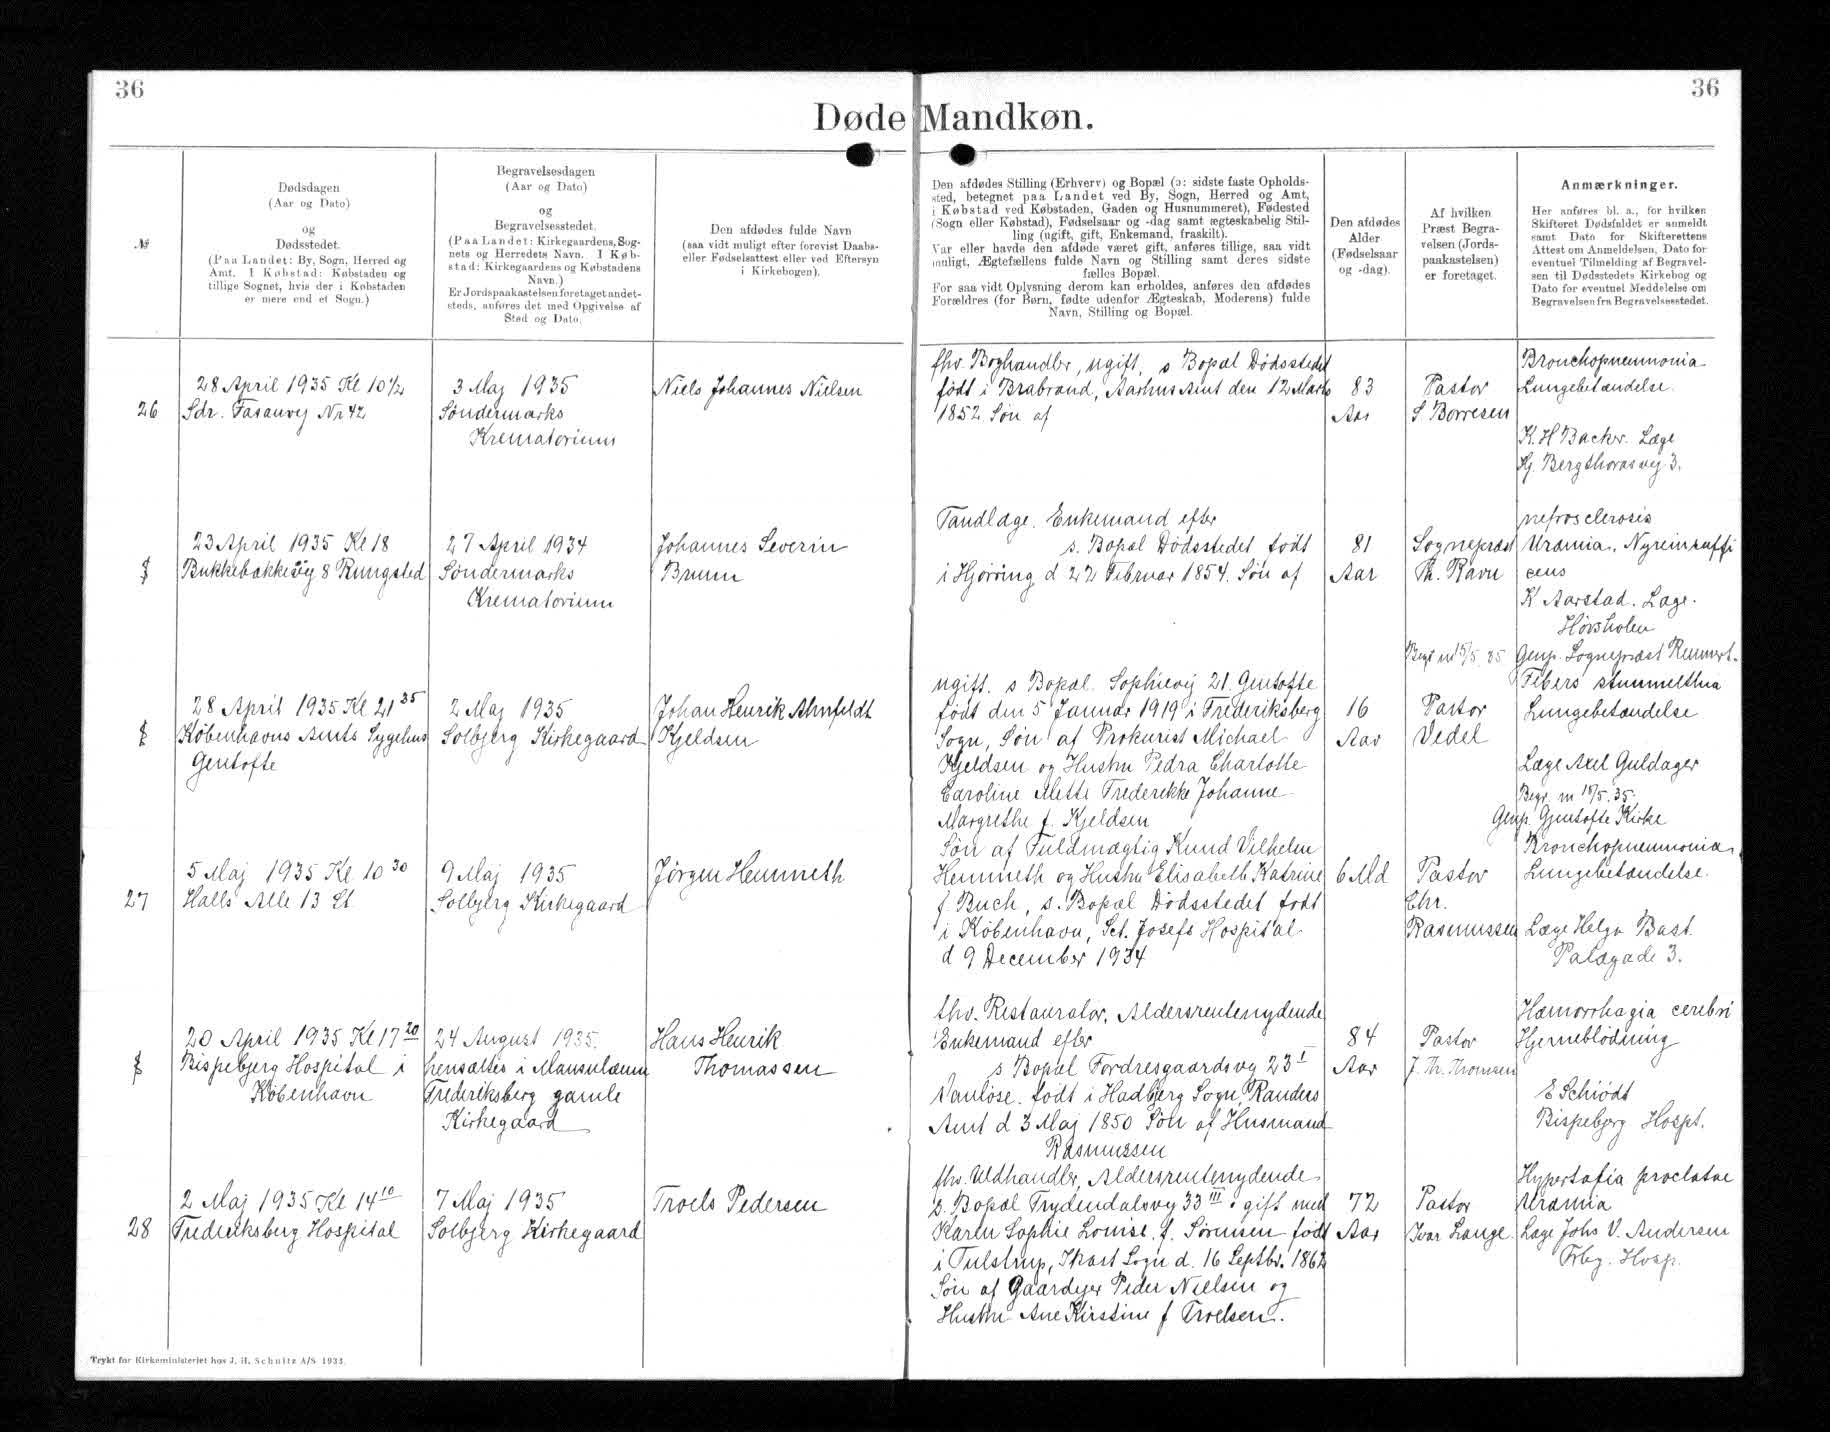 36
36
Døde Mandkøn.
№
Dødsdagen
(Aar og Dato)
og
Dødsstedet.
(Paa Landet: By, Sogn, Herred og
Amt. I Købstad: Købstaden og
tillige Sognet, hvis der i Købstaden
er mere end et Sogn.)
Begravelsesdagen
(Aar og Dato)
og
Begravelsesstedet.
(Paa Landet: Kirkegaardens, Sog-
nets og Herredets Navn. I Køb-
stad: Kirkegaardens og Købstadens
Navn.)
Er Jordspaakastelsen foretaget andet-
steds, anføres det med Opgivelse af
Sted og Dato.
Den afdødes fulde Navn
(saa vidt muligt efter forevist Daabs-
eller Fødselsattest eller ved Eftersyn
i Kirkebogen).
Den afdødes Stilling (Erhverv) og Bopæl (ɔ: sidste faste Opholds-
sted, betegnet paa Landet ved By, Sogn, Herred og Amt,
i Købstad ved Købstaden, Gaden og Husnummeret), Fødested
(Sogn eller Købstad), Fødselsaar og -dag samt ægteskabelig Stil-
ling (ugift, gift, Enkemand, fraskilt).
Var eller havde den afdøde været gift, anføres tillige, saa vidt
muligt, Ægtefællens fulde Navn og Stilling samt deres sidste
fælles Bopæl.
For saa vidt Oplysning derom kan erholdes, anføres den afdødes
Forældres (for Børn, fødte udenfor Ægteskab, Moderens) fulde
Navn, Stilling og Bopæl.
Den afdødes
Alder
(Fødselsaar
og -dag).
Af hvilken
Præst Begra-
velsen (Jords-
paakastelsen)
er foretaget.
Anmærkninger.
Her anføres bl. a., for hvilken
Skifteret Dødsfaldet er anmeldt
samt Dato for Skifterettens
Attest om Anmeldelsen, Dato for
eventuel Tilmelding af Begravel-
sen til Dødsstedets Kirkebog og
Dato for eventuel Meddelelse om
Begravelsen fra Begravelsesstedet.
26
28 April 1935 Kl 10½
Sdr. Fasanvej Nr 42
3 Maj 1935
Søndermarks
Krematorium
Niels Johannes Nielsen
fhv. Boghandler, ugift, s Bopæl Dødsstedet
født i Brabrand, Aarhus Amt den 12 Marts
1852 Søn af
83
Aar
Pastor
S. Borresen
Bronchopneumonia
Lungebetændelse.
K. H Backer. Læge
Kj. Bergthorasvej 3.
23 April 1935 Kl 18
Bukkebakkevej 8 Rungsted
27 April 1934
Søndermarks
Krematorium
Johannes Severin
Bruun
Tandlæge. Enkemand efter
s. Bopæl Dødsstedet født
i Hjørring d 22 Februar 1854. Søn af
81
Aar
Sognepræst
Th. Ravn
nefrosclerosis
Uræmia, Nyreinsuffi
cens
K Aarstad. Læge.
Hørsholm
28 April 1935 Kl 21 35
Københavns Amts Sygehus
Gentofte
2 Maj 1935
Solbjerg Kirkegaard
Johan Henrik Ahnfeldt
Kjeldsen
ugift. s Bopæl. Sophievej 21. Gentofte
født den 5 Januar 1919 i Frederiksberg
Sogn, Søn af Prokurist Michael
Kjeldsen og Hustru Pedra Charlotte
Caroline Mette Frederikke Johanne
Margrethe f. Kjeldsen
16
Aar
Begr m 15/5 35
Pastor
Vedel
Genp. Sognepræst Remmert.
Lungebetændelse
Læge Axel Guldager
Begr. m 15/5. 35.
Genp. Gjentofte Kirke
27
5 Maj 1935 Kl 10 30
Halls Alle 13 St
9 Maj 1935
Solbjerg Kirkegaard
Jørgen Hemmeth
Søn af Fuldmægtig Knud Vilhelm
Hemmeth og Hustru Elisabeth Katrine
f Buch, s. Bopæl Dødsstedet født
i København, Sct. Josefs Hospital
d 9 December 1934
6 Md
Pastor
Chr.
Rasmussen
Bronchopneumonia
Lungebetændelse.
Læge Helga Bast.
Palægade 3.
20 April 1935 Kl 17 20
Bispebjerg Hospital i
København
24 August 1935.
hensættes i Mausulæum
Frederiksberg gamle
Kirkegaard
Hans Henrik
Thomassen
fhv. Restauratør, Aldersrentenydende
Enkemand efter
s Bopæl Fordresgaardsvej 23 I
Vanløse. født i Hadbjerg Sogn, Randers
Amt d 3 Maj 1850 Søn af Husmand
Rasmussen
84
Aar
Pastor
J. Th. Thomsen
Hæmorrhagia cerebri
Hjerneblødning
E Schiødt
Bispebjerg Hospt.
28
2 Maj 1935 Kl 14 10
Frederiksberg Hospital
7 Maj 1935
Solbjerg Kirkegaard
Troels Pedersen
fhv. Uldhandler, Aldersrentenydende
s. Bopæl Frydendalsvej 33 III. gift med
Karen Sophie Louise f. Sørensen født
i Tulstrup, Ikast Sogn d. 16 Septbr. 1862
Søn af Gaardejer Peder Nielsen og
Hustru Ane Kirstine f Troelsen.
72
Aar
Pastor
Ivar Lange.
Hypertofia proclatae
Uræmia
Læge Johs V. Andersen
Frbg. Hosp.
Trykt for Kirkeministeriet hos J. H. Schultz A/S 1933.